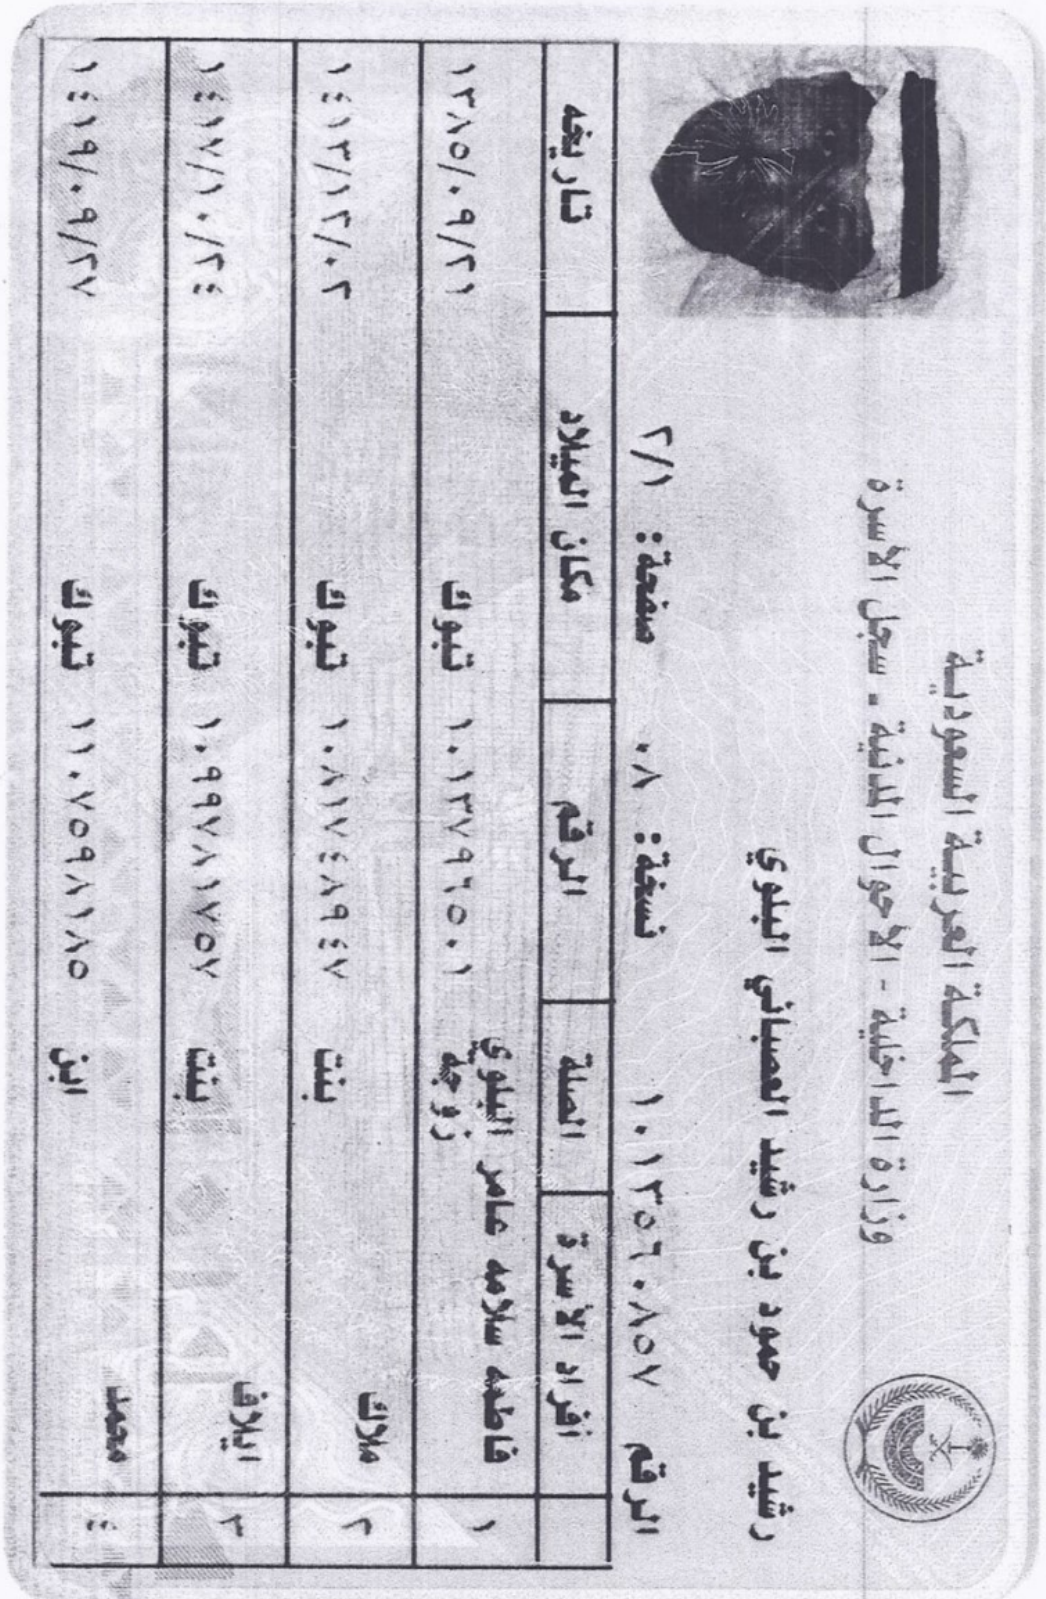 المملكة العربية السعودية
وزارة الداخلية - الأحوال المدنية - سجل الأسرة
رشيد بن حمود بن رشيد العصباني البلوي
الرقم ١٠١٣٥٦٠٨٥٧ نسخة: ٠٨ صفحة: ٢/١
أفراد الأسرة الصلة الرقم مكان الميلاد تاريخه
١ فاطمه سلامه عامر البلوي زوجة ١٠١٣٧٩٦٥٠١ تبوك ١٣٨٥/٠٩/٢١
٢ ملاك بنت ١٠٨١٧٤٨٩٤٧ تبوك ١٤١٣/١٢/٠٢
٣ ايلاف بنت ١٠٩٩٧٨١٧٥٧ تبوك ١٤١٧/١٠/٢٤
٤ محمد ابن ١١٠٧٥٩٨١٨٥ تبوك ١٤١٩/٠٩/٢٧